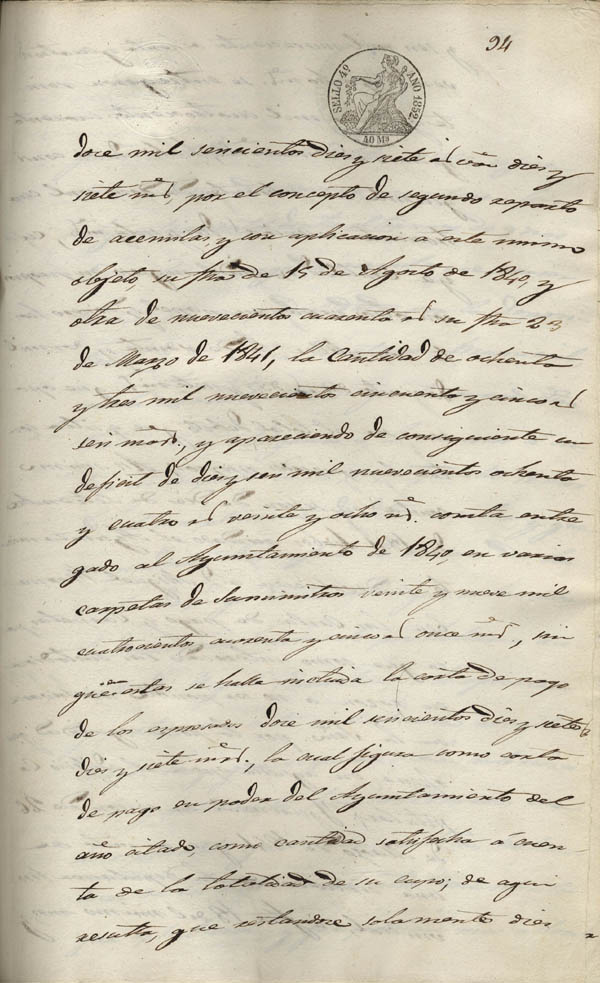 94
SELLO 4º AÑO 1852.
40 Mˢ
doce mil seiscientos dies y siete rˢ vōn dies y
siete mrˢ por el concepto de segundo reparto
de acemilas y con aplicacion á este mismo
objeto, su fha de 15 de Agosto de 1840, y
otra de nuevecientos cuarenta rˢ su fha 23
de Marzo de 1841, la Cantidad de ochenta
y tres mil nuevecientos cincuenta y cinco rˢ
seis mrˢ, y apareciendo de consiguiente un
deficit de dies y seis mil nuevecientos ochenta
y cuatro rˢ veinte y ocho mˢ. consta entre
gado al Ayuntamiento de 1840, en varias
carpetas de Suministros veinte y nueve mil
cuatrocientos cuarenta y cinco rˢ once mrˢ, sin
que en estas se halla incluida la carta de pago
de los espresados doce mil seiscientos dies y siete rˢ
dies y siete mrˢ., la cual figura como carta
de pago en poder del Ayuntamiento del
año citado, como cantidad satisfecha á cuen-
ta de la totalidad de su cupo; de aqui
resulta, que restandose solamente dies